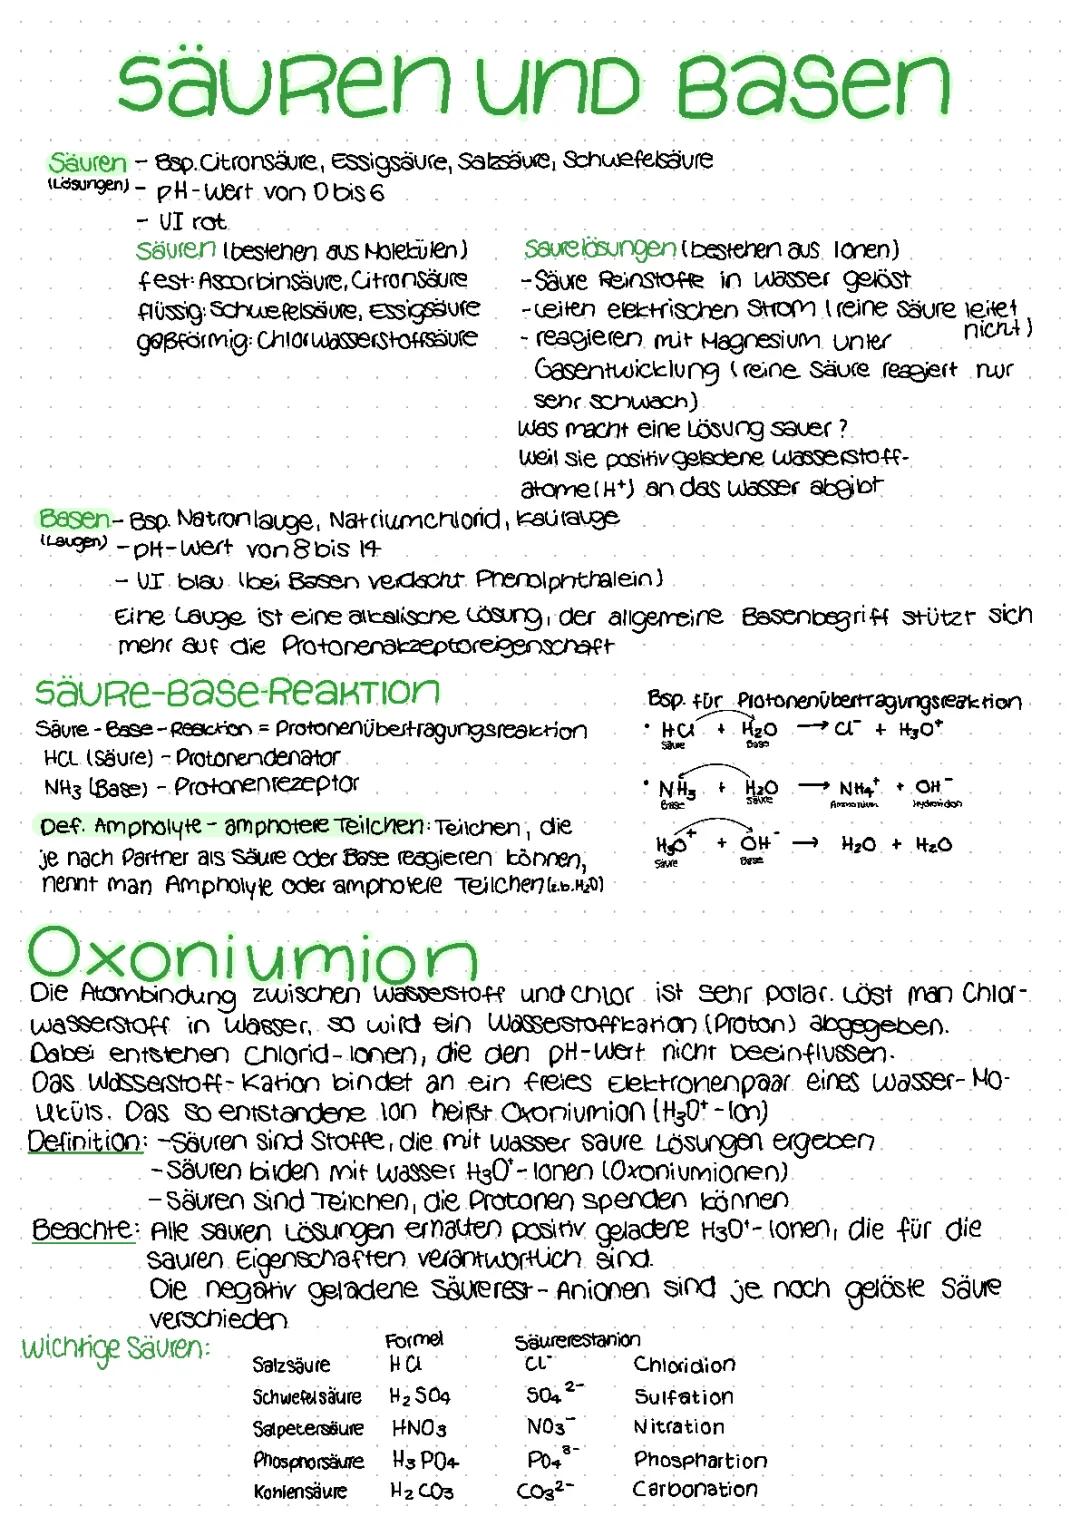 Säuren und Basen
Säuren - Bsp. Citronsäure, Essigsäure, Salzsäure, Schwefelsäure
(Lösungen) - pH-Wert von 0 bis 6
- UI rot
Säuren (bestehen aus Molekülen)
fest: Ascorbinsäure, Citronsäure
flüssig: Schwefelsäure, Essigsäure
gaßförmig: Chlorwasserstoffsäure
Säurelösungen (bestehen aus Ionen)
- Säure Reinstoffe in Wasser gelöst
- Leiten elektrischen Strom (reine Säure leitet nicht)
- reagieren mit Magnesium unter
Gasentwicklung (reine Säure reagiert nur
sehr schwach)
Was macht eine Lösung sauer?
Weil sie positiv geladene Wasserstoff-
atome (H+) an das Wasser abgibt
Basen - Bsp. Natronlauge, Natriumchlorid, Kalilauge
(Laugen) - pH-Wert von 8 bis 14
- UI blau (bei Basen verdacht Phenolphthalein)
Eine Lauge ist eine alkalische Lösung, der allgemeine Basenbegriff stützt sich
mehr auf die Protonenakzeptoreigenschaft
Säure-Base-Reaktion
Säure-Base-Reaktion = Protonenübertragungsreaktion
HCL (Säure) - Protonendenator
NH3 (Base) - Protonenrezeptor
Def. Ampholyte - amphotere Teilchen: Teilchen, die
je nach Partner als Säure oder Base reagieren können,
nennt man Ampholyte oder amphotere Teilchen (z.b. H₂O)
Bsp. für Protonenübertragungsreaktion
• HCl + H₂O → Cl⁻ + H₃O⁺
Säure Base
• NH₃ + H₂O → NH₄⁺ + OH⁻
Base Säure Ammonium Hydroxidion
H₃O⁺ + OH⁻ → H₂O + H₂O
Säure Base
Oxoniumion
Die Atombindung zwischen Wasserstoff und Chlor ist sehr polar. Löst man Chlor-
wasserstoff in Wasser, so wird ein Wasserstoffkation (Proton) abgegeben.
Dabei entstehen Chlorid-Ionen, die den pH-Wert nicht beeinflussen.
Das Wasserstoff-Kation bindet an ein freies Elektronenpaar eines Wasser-Mo-
leküls. Das so entstandene Ion heißt Oxoniumion (H₃O⁺-Ion)
Definition: - Säuren sind Stoffe, die mit Wasser saure Lösungen ergeben
- Säuren bilden mit Wasser H₃O⁺-Ionen (Oxoniumionen)
- Säuren sind Teilchen, die Protonen spenden können
Beachte: Alle sauren Lösungen erhalten positiv geladene H₃O⁺-Ionen, die für die
sauren Eigenschaften verantwortlich sind.
Die negativ geladene Säurerest-Anionen sind je nach gelöste Säure
verschieden
Wichtige Säuren:
Formel Säurerestanion
Salzsäure HCl CL⁻ Chloridion
Schwefelsäure H₂SO₄ SO₄²⁻ Sulfation
Salpetersäure HNO₃ NO₃⁻ Nitration
Phosphorsäure H₃PO₄ PO₄³⁻ Phosphartion
Kohlensäure H₂CO₃ CO₃²⁻ Carbonation